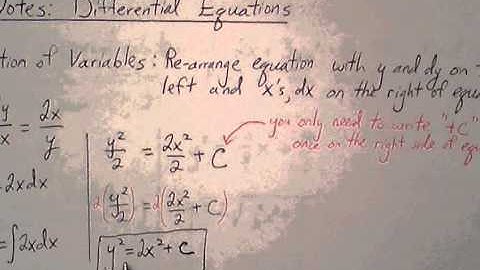 Notes: Differential Equations
tion of Variables: Re-arrange equation with y and dy on
left and x's, dx on the right of equ
y/x = 2x/y
y²/2 = 2x²/2 + C
you only need to write "+C"
once on the right side of eq
2xdx
2(y²/2) = 2(2x²/2 + C)
= ∫2xdx
y² = 2x² + C